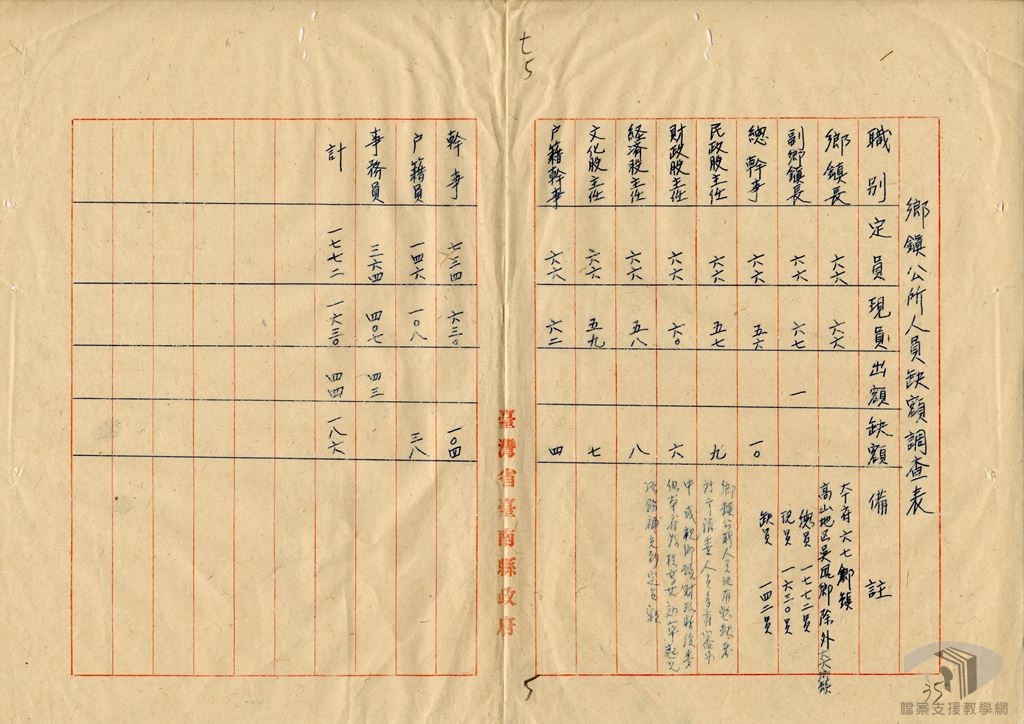 七
5
鄉鎮公所人員缺額調查表
職別 定員 現員 出額 缺額 備註
鄉鎮長 六六 六六
副鄉鎮長 六六 六七 一
總幹事 六六 五六 一〇
民政股主任 六六 五七 九
財政股主任 六六 六〇 六
経済股主任 六六 五八 八
文化股主任 六六 五九 七
户籍幹事 六六 六二 四
本府六七鄉鎮
高山地区吳鳳鄉除外
總員 一七七二員
現員 一六三〇員
缺員 一四二員
臺灣省臺南縣政府
幹事 七三四 六三〇 一〇四
户籍員 一四六 一〇八 三八
事務員 三六四 四〇七 四三
計 一七七二 一六三〇 四四 一八六
5
35
檔案支援教學網